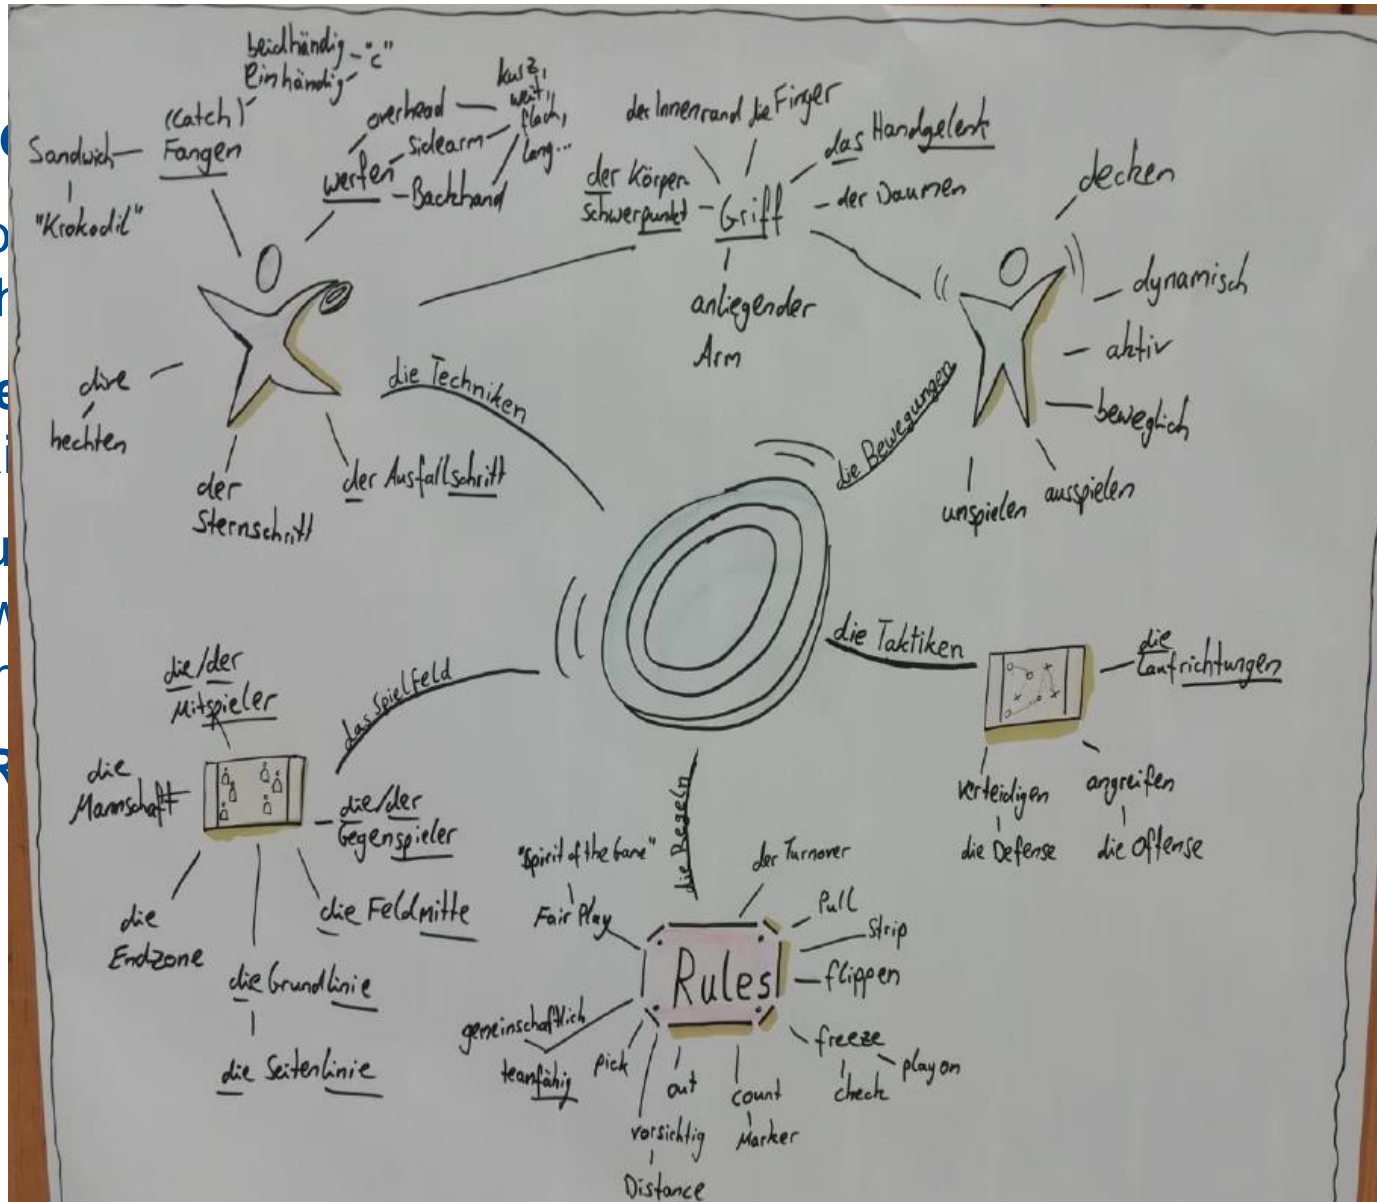 beidhändig - "c"
einhändig
(Catch)
Fangen
Sandwich
"Krokodil"
werfen
overhead
sidearm
Backhand
kurz,
weit,
flach,
lang...
dive
hechten
der
Sternschritt
der Ausfallschritt
die Techniken
der Innenrand
die Finger
das Handgelenk
der Körper-
schwerpunkt
Griff
der Daumen
anliegender
Arm
decken
dynamisch
aktiv
beweglich
ausspielen
umspielen
die Bewegungen
die Taktiken
die
Laufrichtungen
verteidigen
die Defense
angreifen
die Offense
das Spielfeld
die/der
Mitspieler
die
Mannschaft
die/der
Gegenspieler
die
Endzone
die Feldmitte
die Grundlinie
die Seitenlinie
die Regeln
"Spirit of the Game"
Fair Play
der Turnover
Pull
Strip
flippen
Rules
freeze
play on
check
gemeinschaftlich
teamfähig
pick
vorsichtig
Distance
out
count
Marker